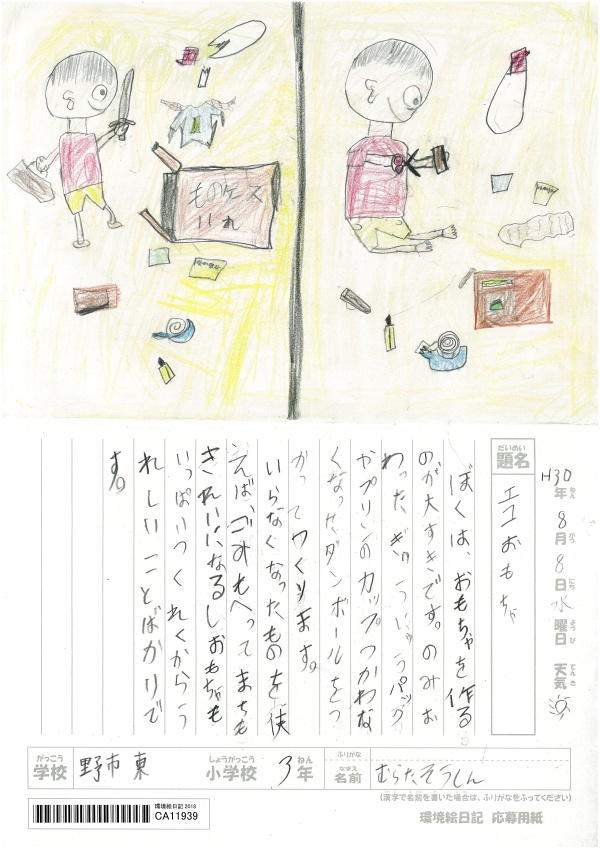 ものケース
いれ
H30年 8月 8日 水曜日 天気
ねん がつ にち ようび てんき
だいめい
題名
エコおもちゃ
ぼくは、おもちゃを作る
のが大すきです。のみお
わった、ぎゅうにゅうパック
やプリンのカップつかわな
くなったダンボールをつ
かってつくります。
いらなくなったものを使
えば、ごみもへってまちも
きれいになるしおもちゃも
いっぱいつくれくからう
れしいことばかりで
す。
がっこう
学校 野市東
しょうがっこう ねん
小学校 3年
ふりがな
なまえ
名前 むらたそうしん
(漢字で名前を書いた場合は、ふりがなをふってください)
環境絵日記 2018
CA11939
環境絵日記 応募用紙